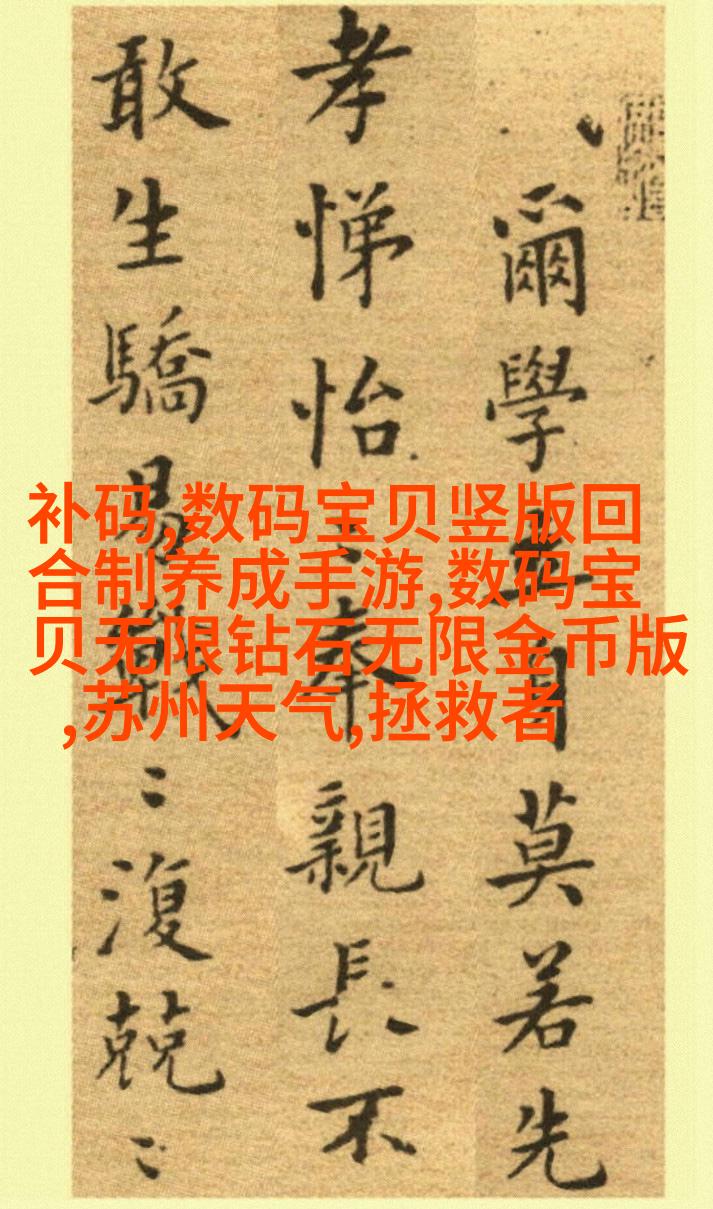 爾學立身莫若先
孝悌怡怡奉親長不
敢生驕易戰戰復兢兢
补码,数码宝贝竖版回
合制养成手游,数码宝
贝无限钻石无限金币版
,苏州天气,拯救者